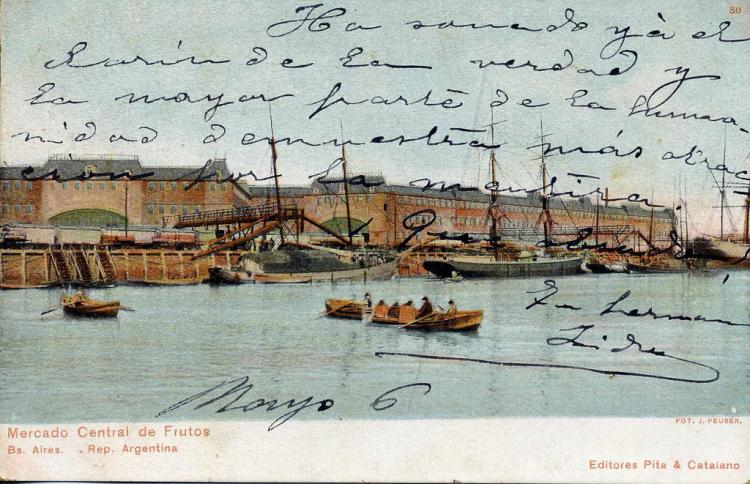 30
Ha sonado ya el
clarin de la verdad y
la mayor parte de la huma
nidad demuestra más atrac
cion por la mentira
¡Que abundan
Tu herman
Isidro
Mayo 6
Mercado Central de Frutos
Bs. Aires. . Rep. Argentina
FOT. J. PEUSER.
Editores Pita & Catalano